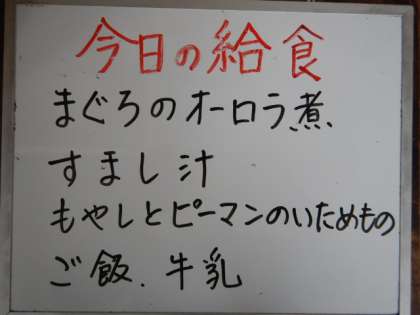 今日の給食
まぐろのオーロラ煮
すまし汁
もやしとピーマンのいためもの
ご飯.牛乳